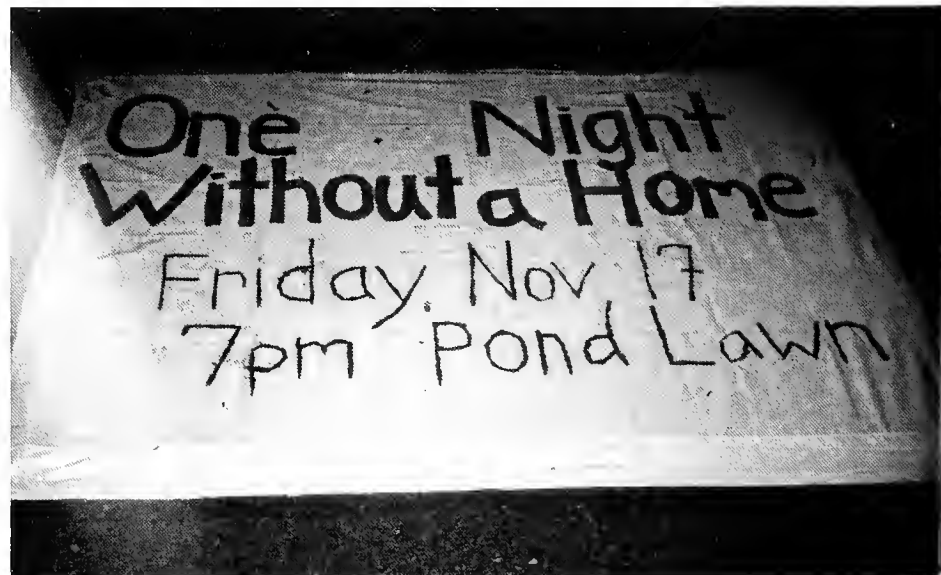 One Night
Without a Home
Friday Nov. 17
7pm Pond Lawn